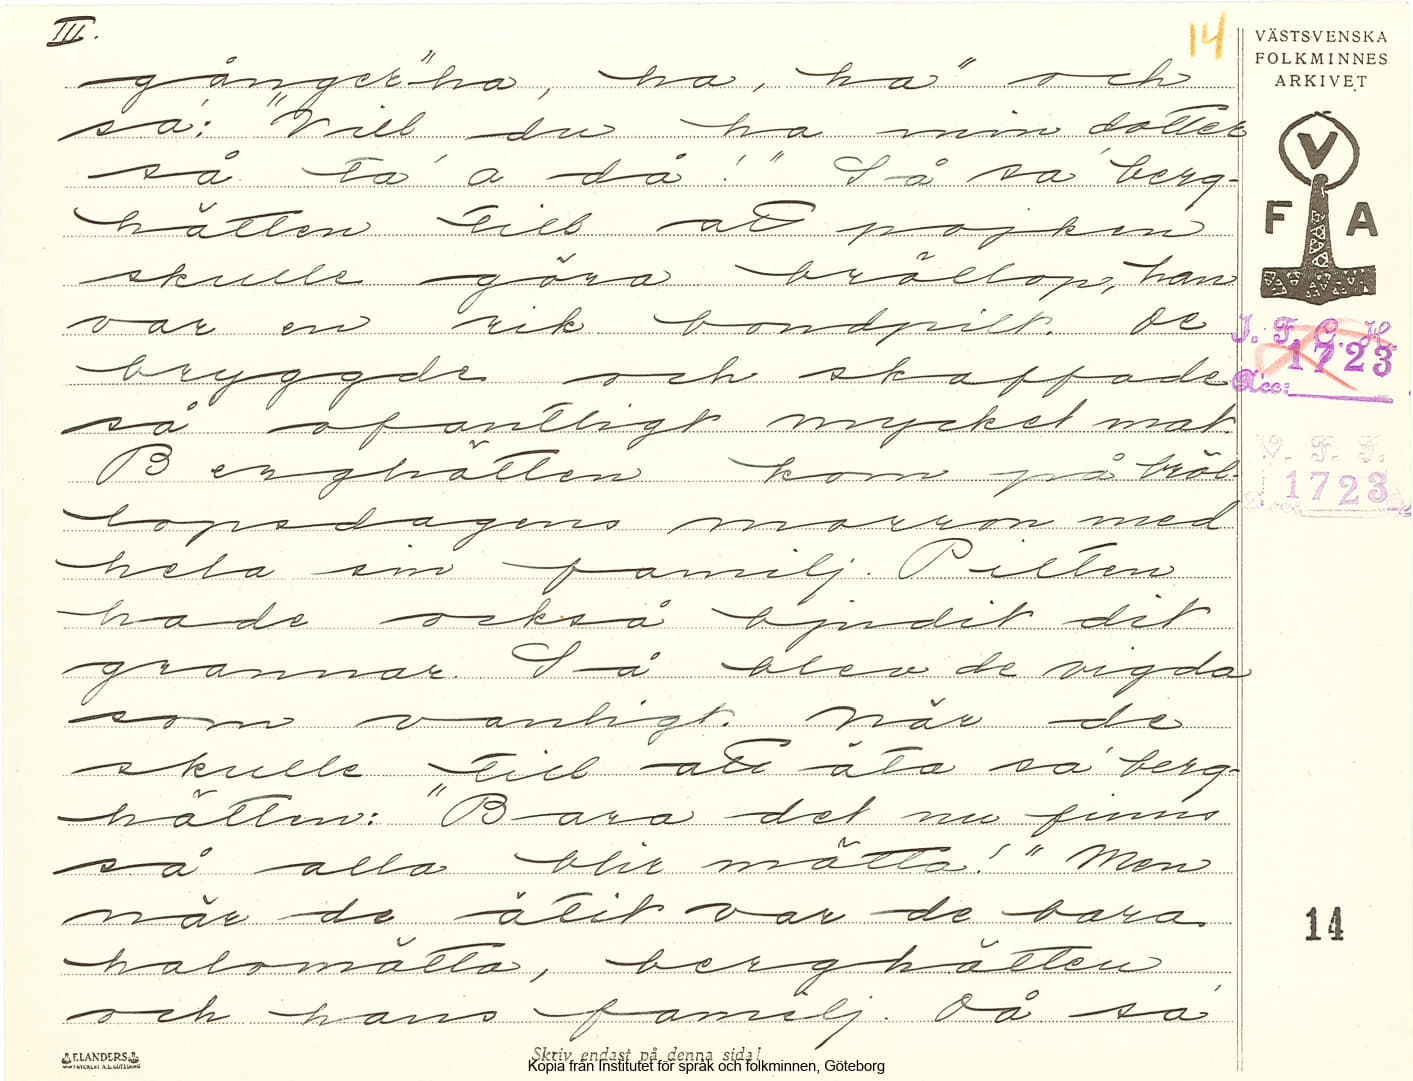 III.
14
gånger "ha, ha, ha" och
sa': "Vill du ha min dotter
så ta' a då!" Så sa' berg-
hätten till att pojken
skulle göra bröllop, han
var en rik bondpilt. De
bryggde och skaffade
så ofantligt mycket mat.
Berghätten kom på bröl-
lopsdagens morron med
hela sin familj. Pilten
hade också bjudit dit
grannar. Så blev de vigda
som vanligt. När de
skulle till att äta sa' berg-
hätten: "Bara det nu finns
så alla blir mätta!" Men
när de ätit var de bara
halvmätta, berghätten
och hans familj. Då sa'
VÄSTSVENSKA
FOLKMINNES
ARKIVET
V
F A
I. F. G. H.
1723
Acc:
V. F. F.
1723
14
F. LANDERS
Skriv endast på denna sida!
Kopia från Institutet för språk och folkminnen, Göteborg